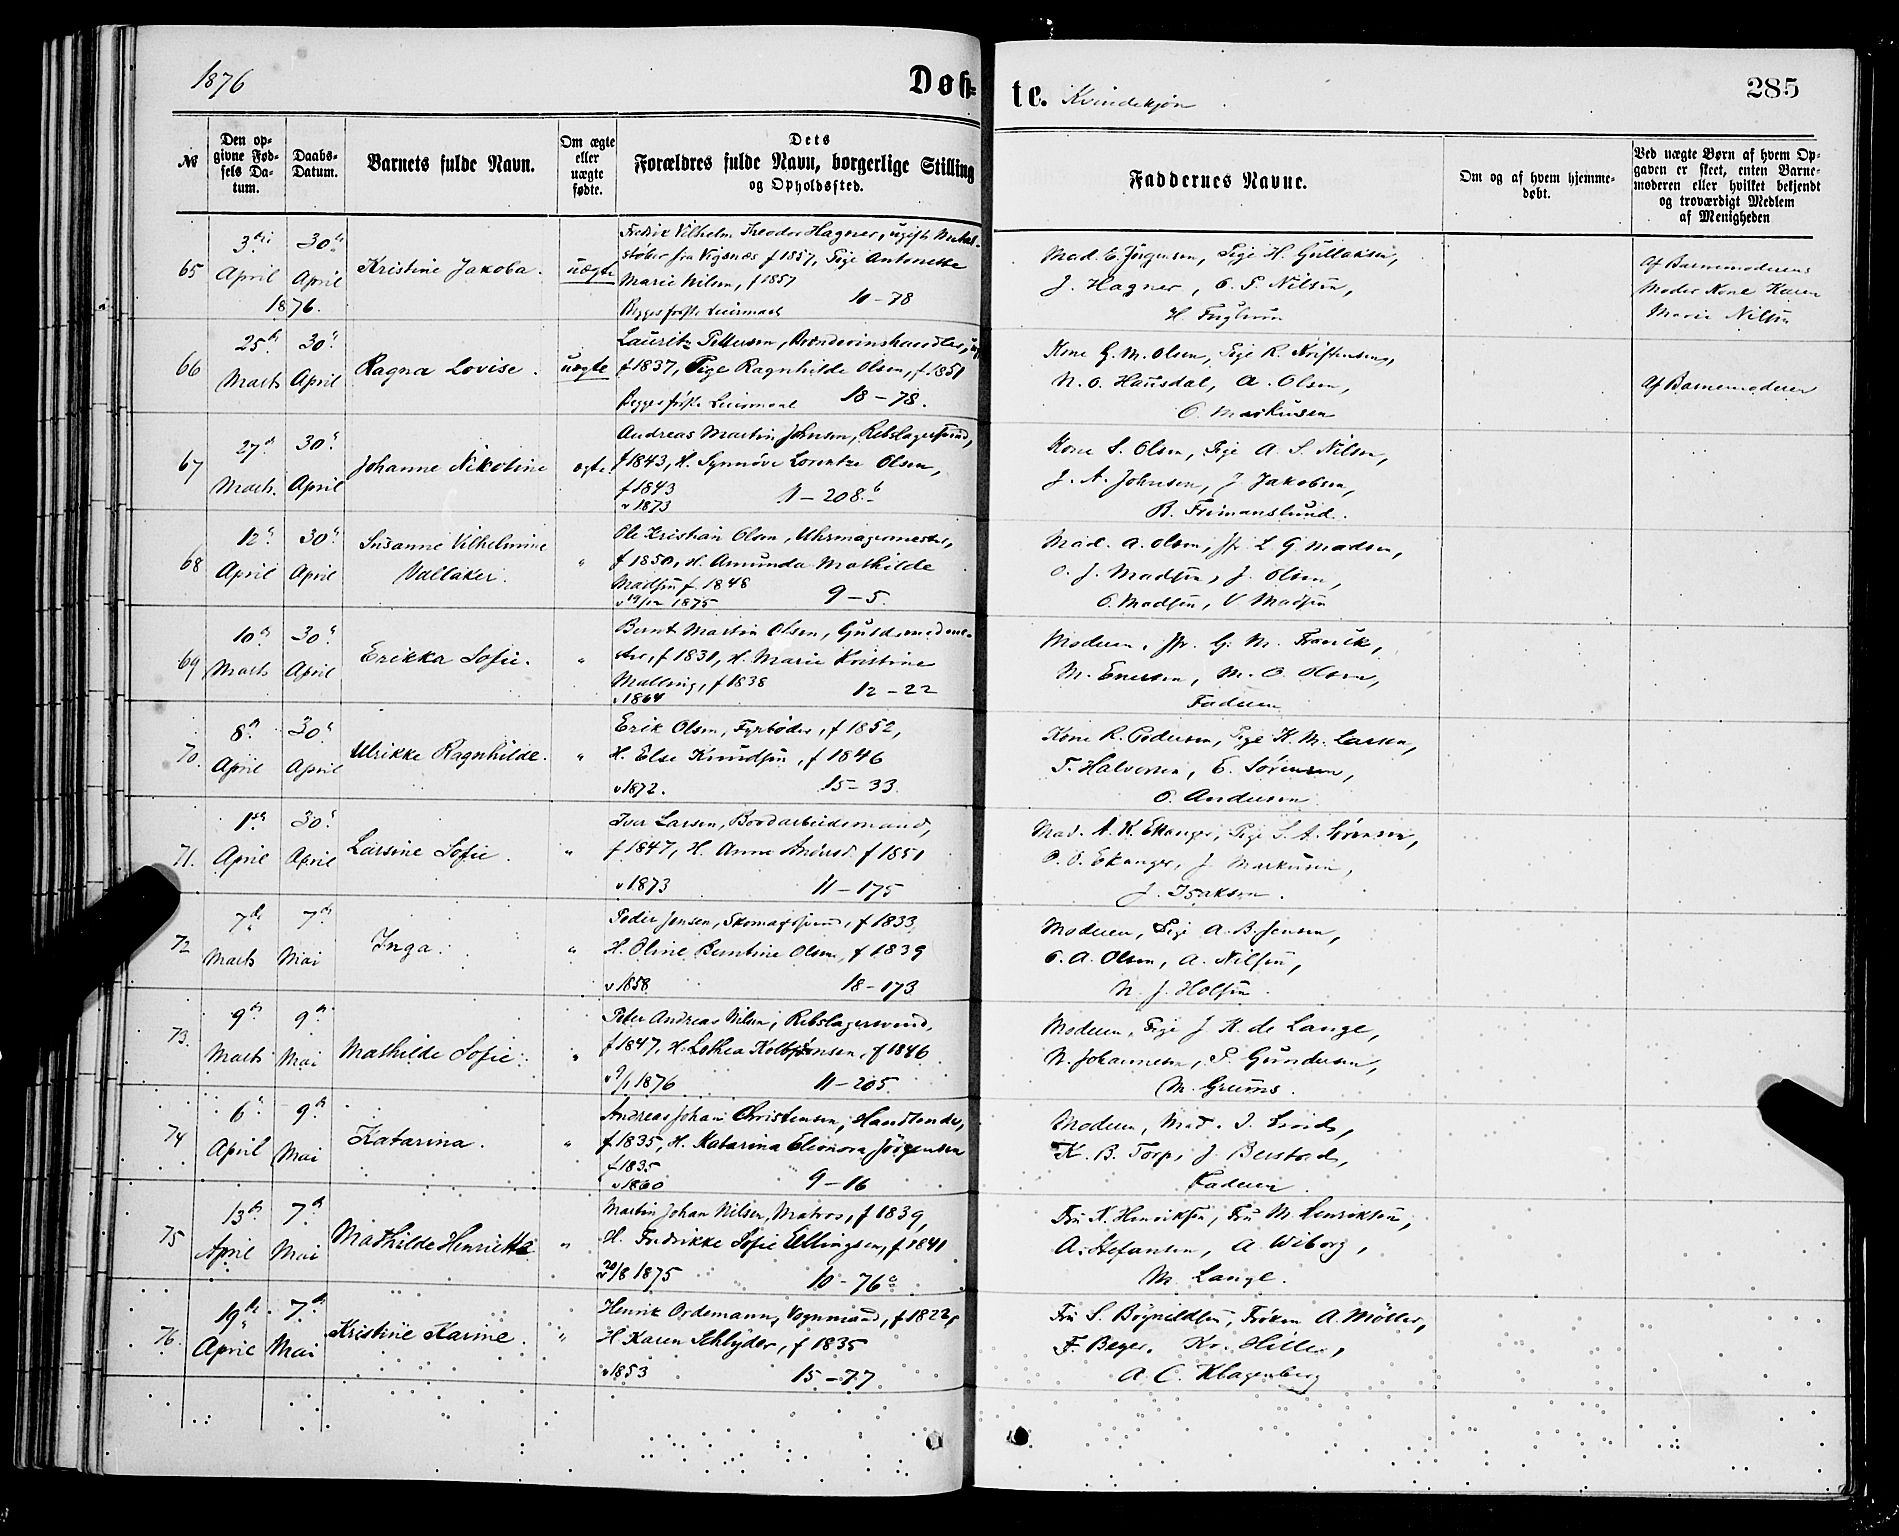 1876
Døb-
te. Kvindekjøn
285
№
Den op-
givne Fød-
sels Da-
tum.
Daabs-
Datum.
Barnets fulde Navn.
Om ægte
eller
uægte
fødte.
Dets
Forældres fulde Navn, borgerlige Stilling
og Opholdssted.
Faddernes Navne.
Om og af hvem hjemme-
døbt.
Ved uægte Børn af hvem Op-
gaven er skeet, enten Barne-
moderen eller hvilket bekjendt
og troværdigt Medlem
af Menigheden
65
3die
April
1876.
30te
April
Kristine Jakoba.
uægte
Fredrik Vilhelm Theodor Hagner, ugift Metal-
støber fra Vigsnæs f 1857, Pige Antonette
Marie Nilsen, f 1857
Begges første Leiermaal 10-78
Mad. E. Jørgensen, Pige H. Gullaksen,
J. Hagner, O. P. Nilsen,
H. Fuglevin
Af Barnemoderens
Moder Kone Karen
Marie Nilsen
66
25de
Marts
30te
April
Ragna Lovise.
uægte
Lauritz Pettersen, Brændevinshandler,
f 1837, Pige Ragnhilde Olsen, f 1851
Begges første Leiermaal 18-78.
Kone G. M. Olsen, Pige R. Kristensen,
N. O. Hausdal, A. Olsen,
O. Markusen
Af Barnemoderen
67
27de
Marts.
30te
April
Johanne Nikoline
ægte.
Andreas Martin Johnsen, Rebslagersvend,
f 1843, H. Synnøve Lorentze Olsen,
f 1843
v 1873 11-208 b
Kone S. Olsen, Pige A. S. Nilsen,
J. A. Johnsen, J. Jakobsen,
B. Frimanslund.
68
12te
April
30te
April
Susanne Vilhelmine
Vallaker.
"
Ole Kristian Olsen, Uhrmagermester,
f 1850, H. Amunda Mathilde
Madsen f. 1848
v 19/12 1875 9-5.
Mad. A. Olsen, Jfr. L. G. Madsen,
O. J. Madsen, J. Olsen,
O. Madsen, V. Madsen
69
10de
Marts
30te
April
Erikka Sofie.
"
Bernt Martin Olsen, Guldsmedme-
ster, f 1831, H. Marie Kristine
Malling, f 1838
v 1864 12-22
Moderen, Jfr. G. M.
M. Enersen, M. O. Olsen,
Faderen
70.
8de
April
30te
April
Ulrikke Ragnhilde.
"
Erik Olsen, Fyrbøder, f 1852,
H. Else Knudsen, f 1846
v 1872. 15-33.
Kone R. Pedersen, Pige K. M. Larsen,
T. Halvorsen, E. Sørensen,
O. Andersen
71.
1ste
April
30te
April
Larsine Sofie.
"
Iver Larsen, Bordarbeidsmand,
f 1847, H. Anne f 1851
v 1873 11-175
Mad. A. K. Ekanger, Pige S. A. Sørensen,
O. O. Ekanger, J. Markusen,
J. Isaksen.
72
7de
Marts
7de
Mai
Inga.
"
Peder Jensen, Skomagersvend, f 1833,
H. Oline Berntine Olsen, f 1839
v 1858 18-173
Moderen, Pige A. B. Jensen,
O. A. Olsen, A. Nilsen,
N. J. Holsen.
73.
9de
Marts
9de
Mai
Mathilde Sofie.
"
Peter Andreas Nilsen, Rebslagersvend,
f 1847, H. Lothea Kolbjørnsen, f 1846
v 9/1 1876 11-205
Moderen, Pige J. K. de Lange,
N. Johannesen, P. Gundersen,
M. Greums.
74
6te
April
9de
Mai
Katarina.
"
Andreas Johan Christensen, Handlende,
f 1835, H. Katarina Eleonora Jörgensen
f 1835
v 1860 9-16
Moderen, Mad. J.
K. B. Torp, J. Berstad,
Faderen
75
13de
April
7de
Mai
Mathilde Henriette
"
Martin Johan Nilsen, Matros, f 1839,
H. Fredrikke Sofie Ellingsen, f 1841
v 20/8 1875 10-76 a
Fru K. Henriksen, Fru M. Henriksen,
A. Stefansen, A. Wiborg,
M. Lange.
76.
19de
April
7de
Mai
Kristine Karine.
"
Henrik Ordemann, Vognmand, f 1822,
H. Karen Schlyder, f 1835
v 1853 15-77
Fru S. Bøgnildsen, Frøken A. Møller,
F. Beyer, Kr. Hiller,
A. C. Klagenberg